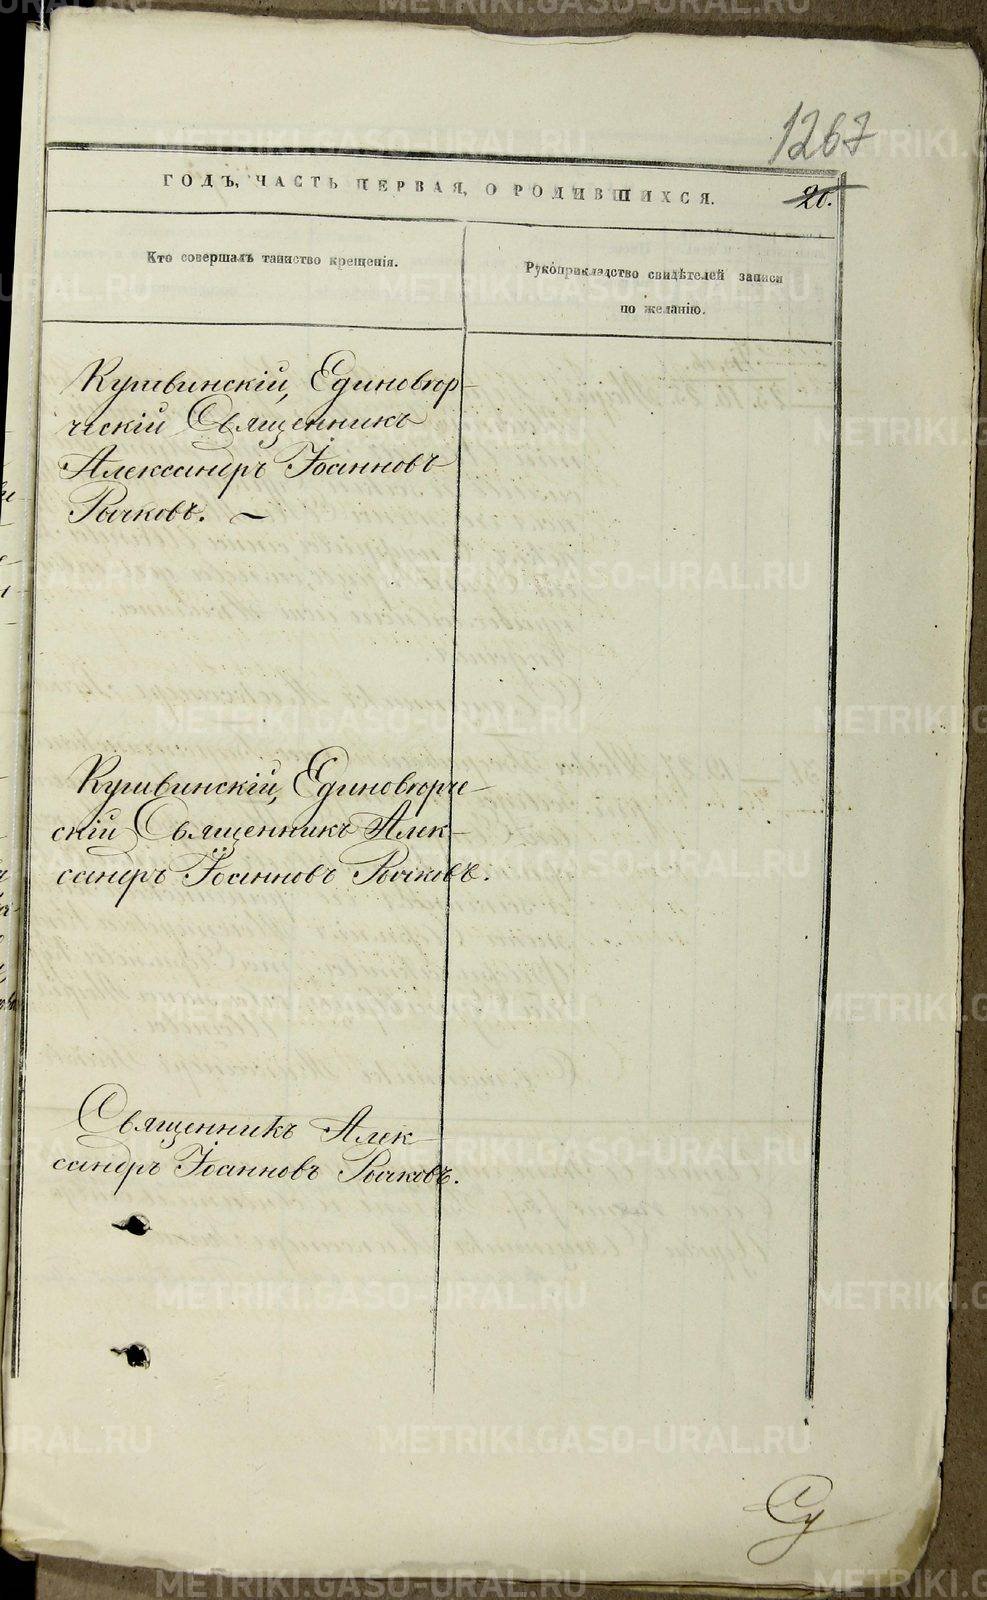 1267
ГОДЪ, ЧАСТЬ ПЕРВАЯ, О РОДИВШИХСЯ.
20.
Кто совершалъ таинство крещенія.
Рукоприкладство свидѣтелей записи
по желанію.
Кушвинскій, Единовѣр-
ческій Священникъ
Александръ Іоанновъ
Рычковъ. —
Кушвинскій, Единовѣрче-
скій Священникъ Алек-
сандръ Іоанновъ Рычковъ.
Священникъ Алек-
сандръ Іоанновъ Рычковъ.
Су
METRIKI.GASO-URAL.RU